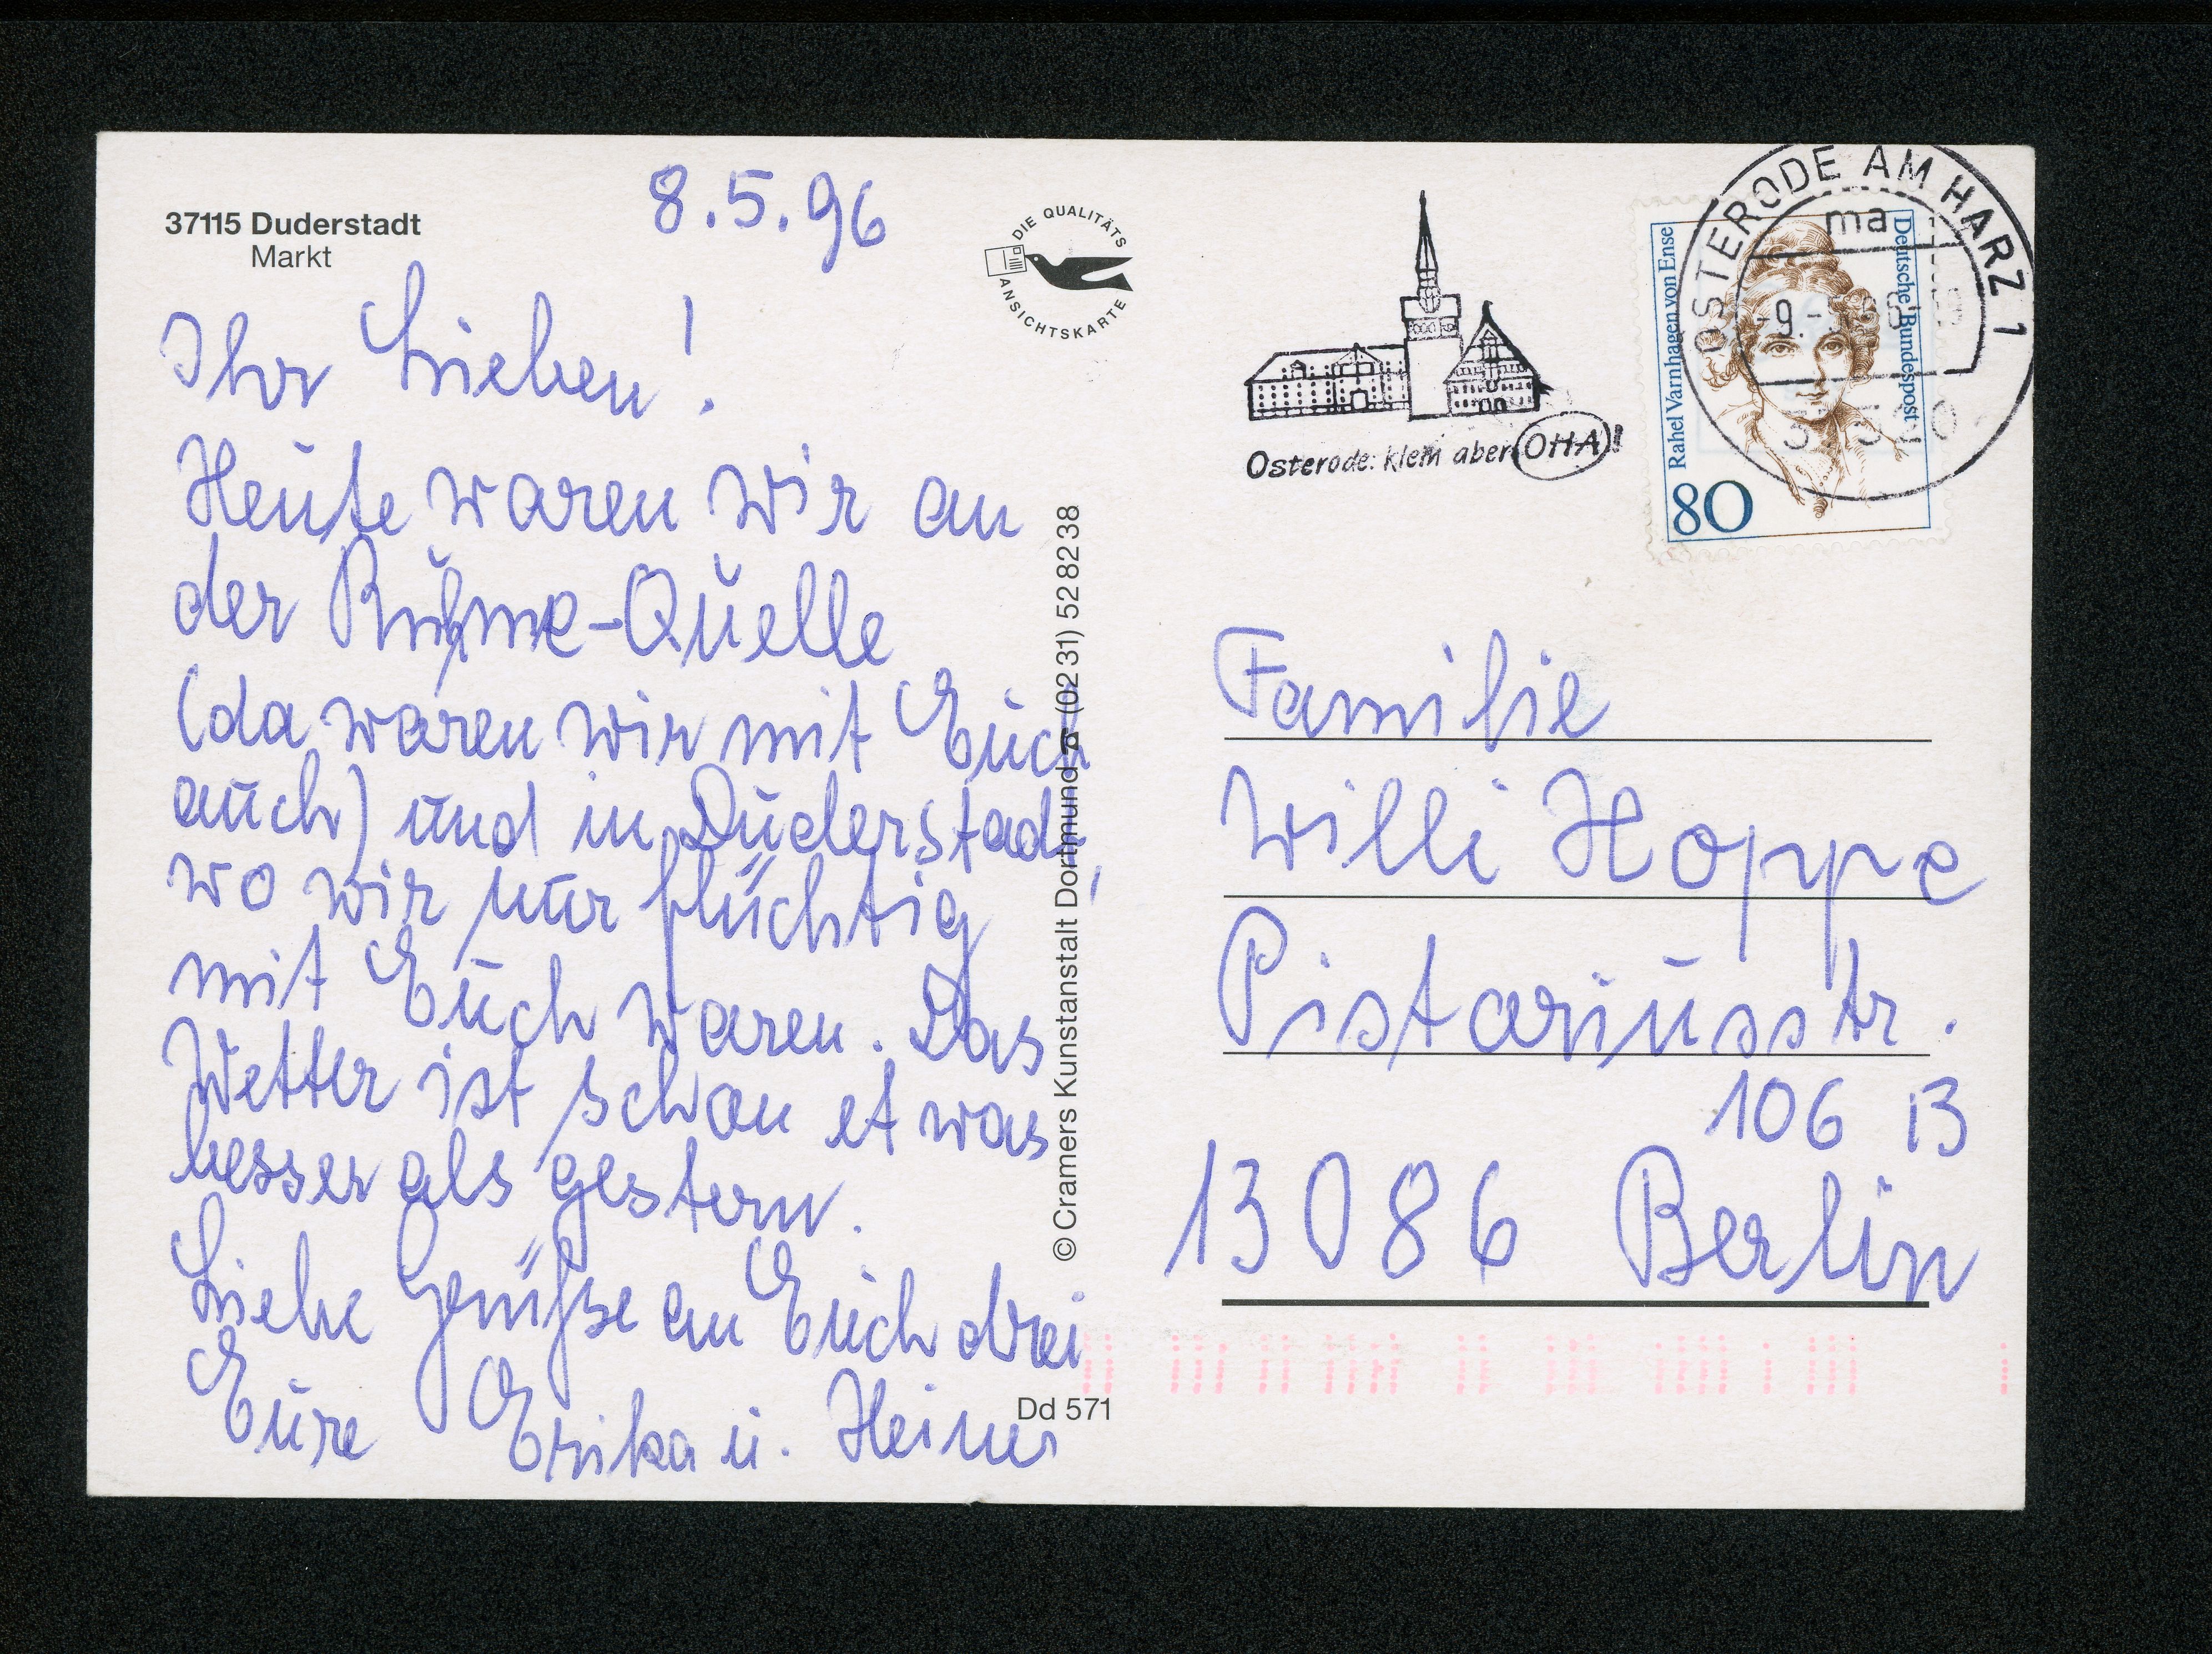 37115 Duderstadt
Markt
8.5.96
Ihr Lieben!
Heute waren wir an
der Ruhme-Quelle
(da waren wir mit Euch
auch) und in Duderstadt,
wo wir nur flüchtig
mit Euch waren. Das
Wetter ist schon etwas
besser als gestern.
Liebe Grüße an Euch drei
Eure Erika u. Heiner
DIE QUALITÄTS
ANSICHTSKARTE
© Cramers Kunstanstalt Dortmund ☎ (02 31) 52 82 38
Dd 571
Osterode: klein aber OHA!!
OSTERODE AM HARZ 1
ma
-9.-5.96
Rahel Varnhagen von Ense
Deutsche Bundespost
80
Familie
Willi Hoppe
Pistoriusstr.
106 B
13086 Berlin